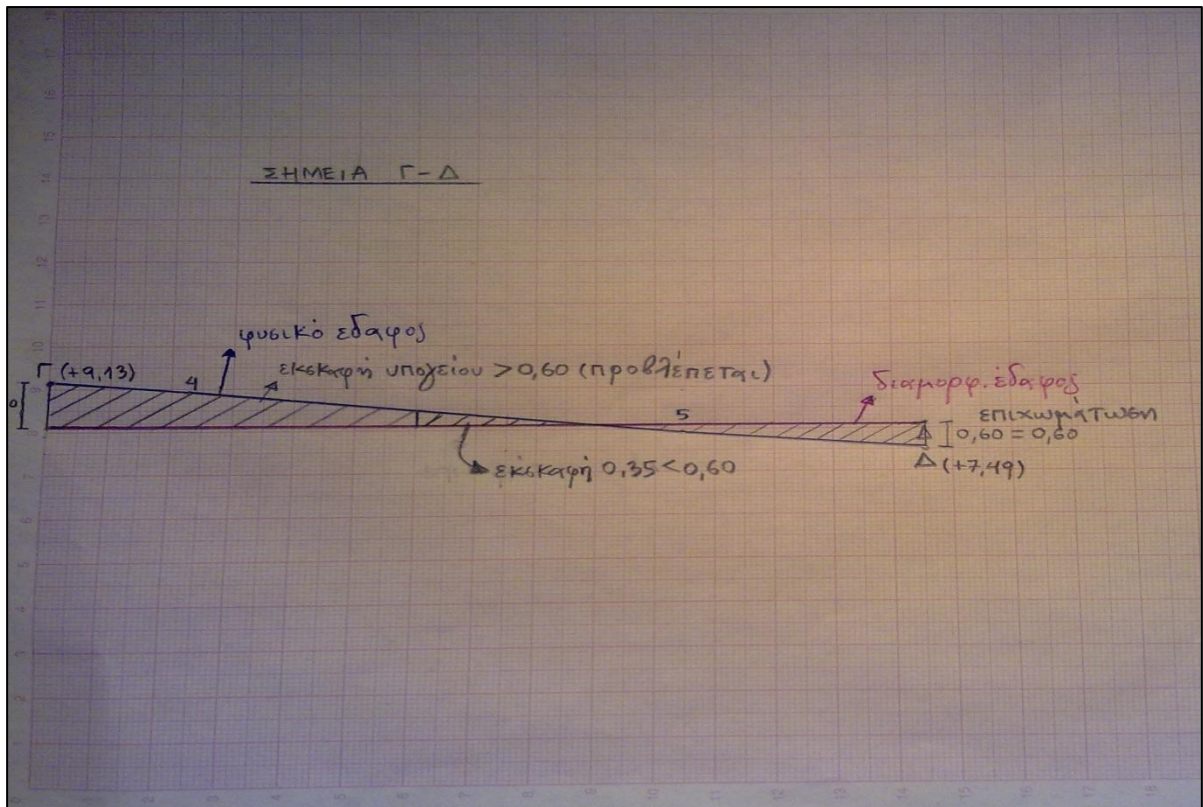 ΣΗΜΕΙΑ Γ-Δ
φυσικό έδαφος
Γ (+9,13)
4
εκσκαφή υπογείου > 0,60 (προβλέπεται)
διαμορφ. έδαφος
5
επιχωμάτωση
0,60 = 0,60
εκσκαφή 0,35 < 0,60
Δ (+7,49)